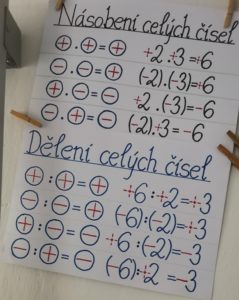 Násobení celých čísel
⊕.⊕=⊕ +2.+3=+6
⊖.⊖=⊕ (-2).(-3)=+6
⊕.⊖=⊖ +2.(-3)=-6
⊖.⊕=⊖ (-2).+3=-6
Dělení celých čísel
⊕:⊕=⊕ +6:+2=+3
⊖:⊖=⊕ (-6):(-2)=+3
⊕:⊖=⊖ +6:(-2)=-3
⊖:⊕=⊖ (-6):+2=-3